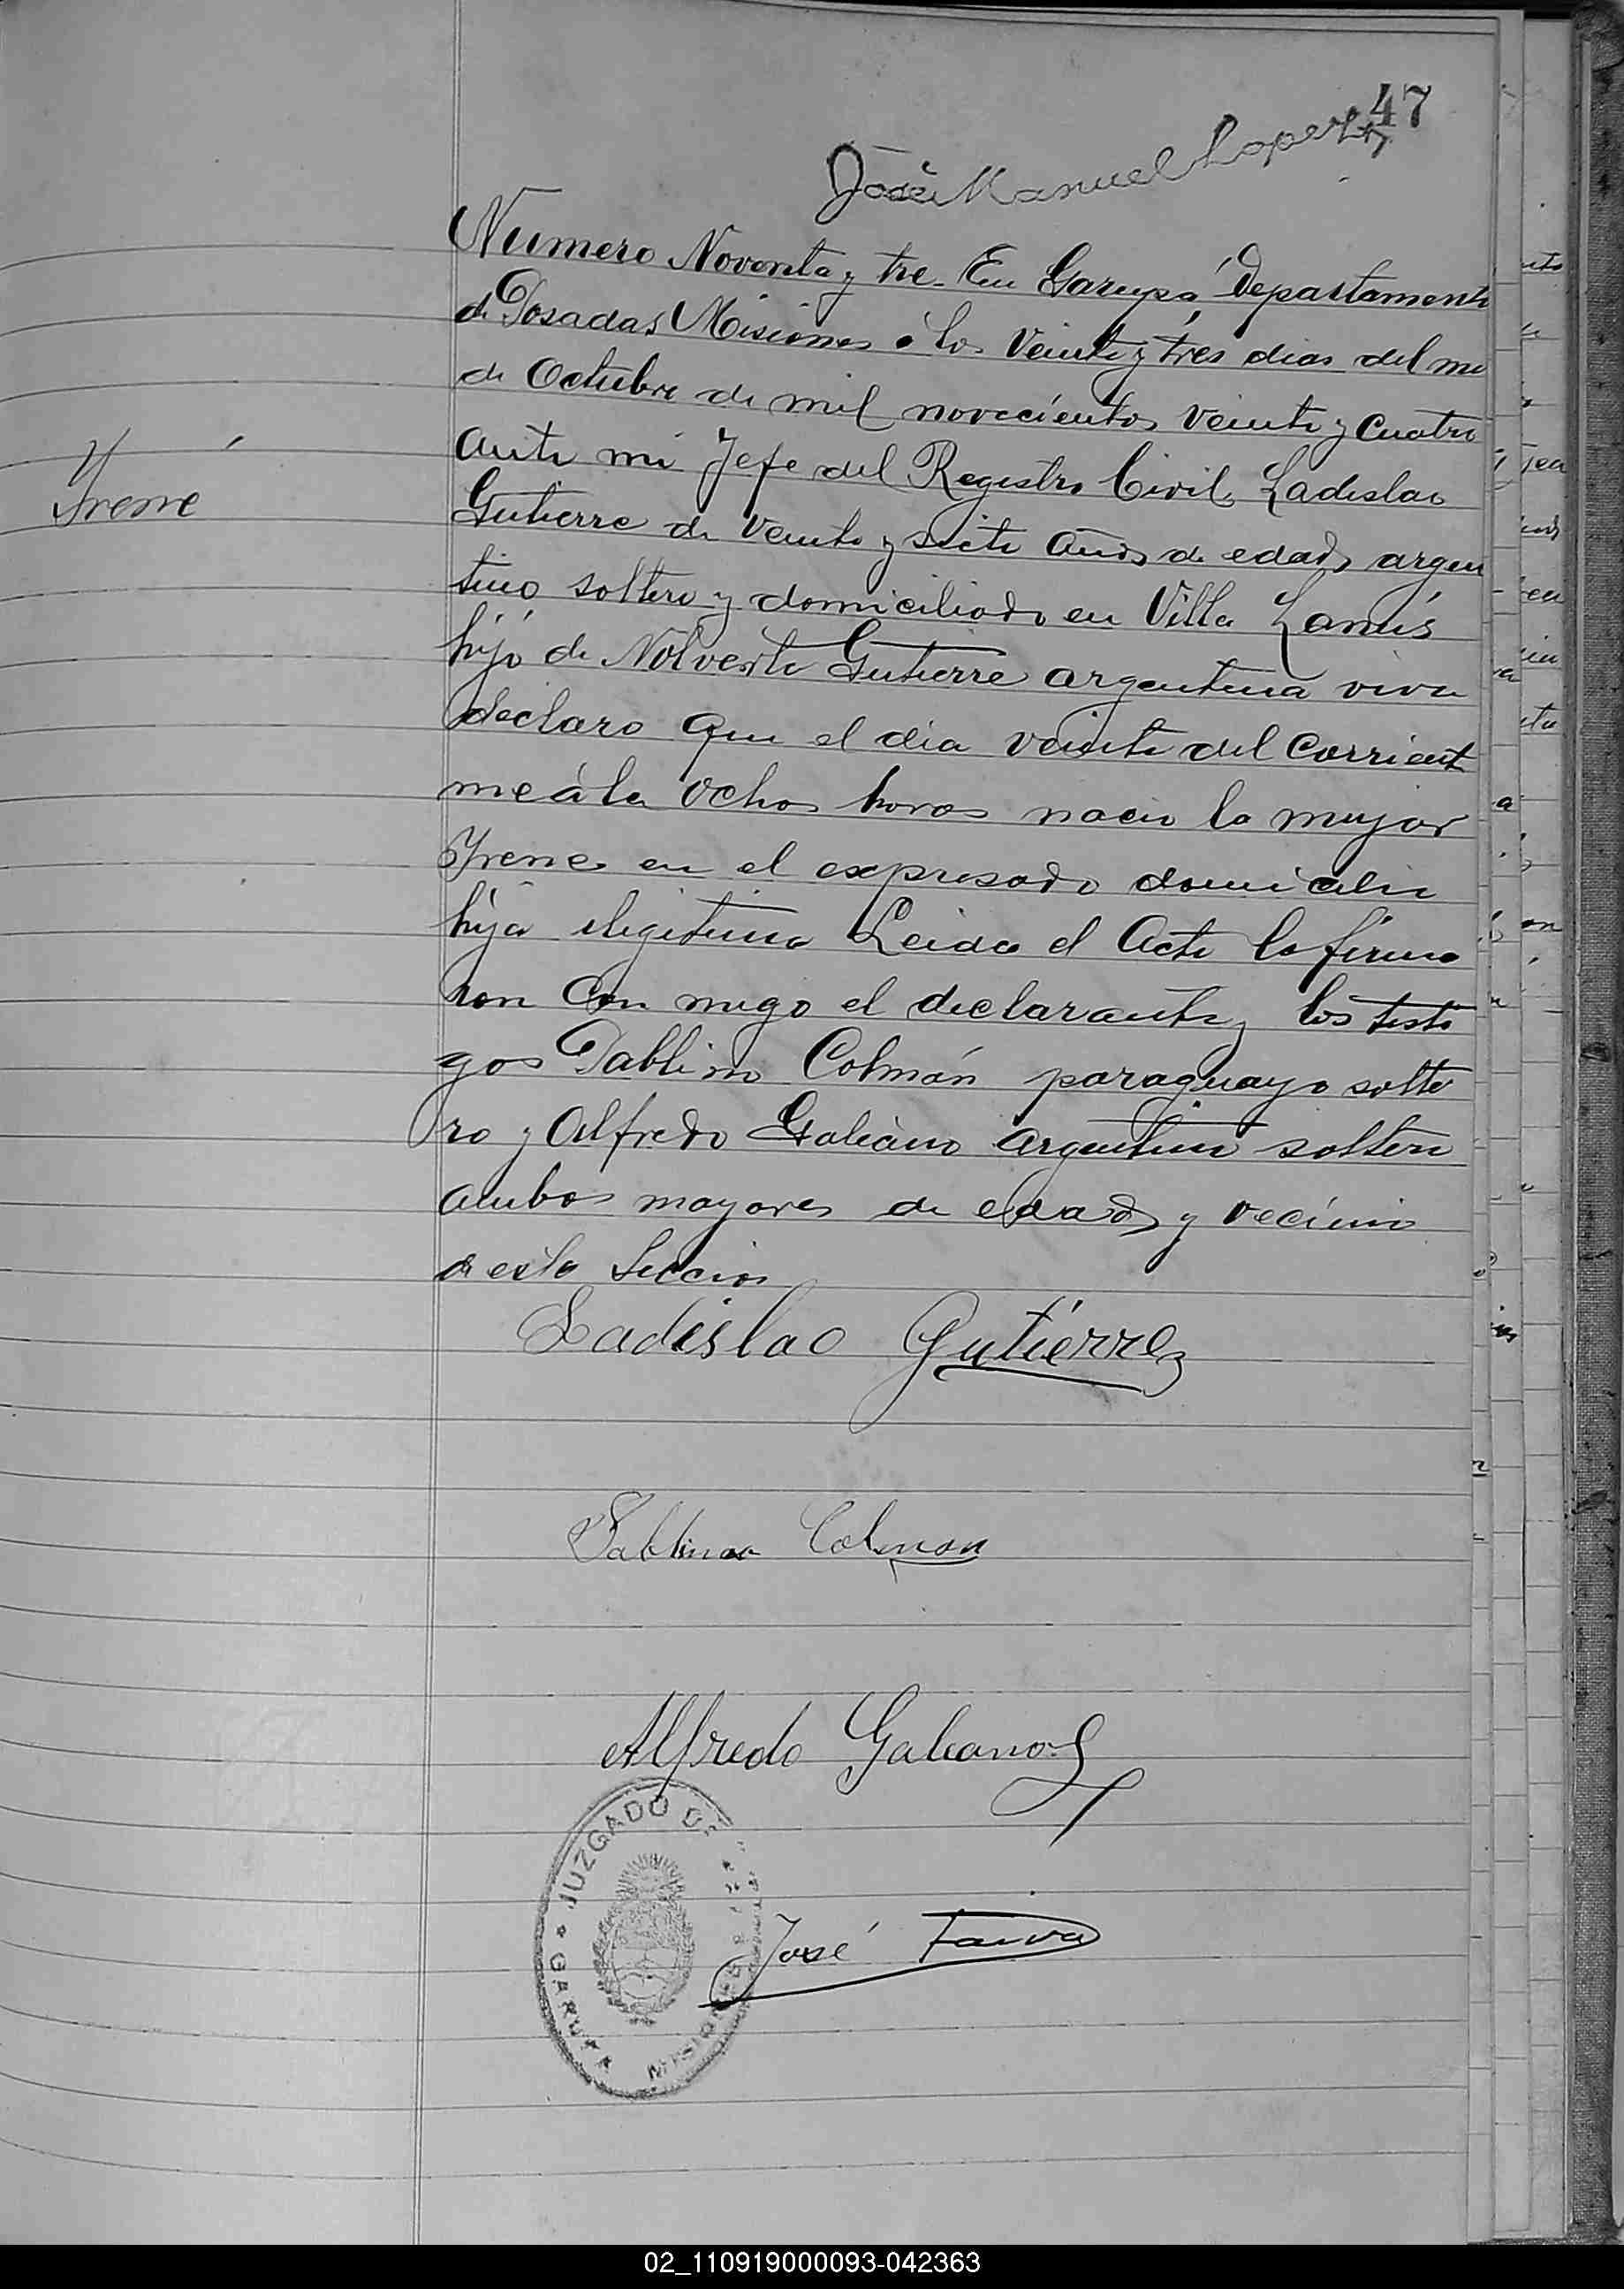 47
José Manuel Lopez
Numero Noventa y tre. En Garupá Departamento
de Posadas Misiones á los Veinte y tres dias del me
de Octubre de mil novecientos veinte y cuatro
ante mi Jefe del Registro Civil, Ladislao
Ÿrene
Gutierre de veinte y siete años de edad, argen
tino soltero y domiciliado en Villa Lanús
hijo de Nolverta Gutierre argentina viva
declaro que el dia veinte del corriente
me á la ochos horas nacio la mujer
Yrene en el expresado domicilio
hija ilegitima Leida el Acta la firma
ron con migo el declarante y los testi
gos Pablino Colmán paraguayo solte
ro y Alfredo Galeano argentino soltero
ambos mayores de edad y vecino
de esta Seccion
Ladislao Gutiérrez
Pablino Colman
Alfredo Galeano
JUZGADO DE PAZ
José Paiva
* GARUPA MISIONES
02_110919000093-042363